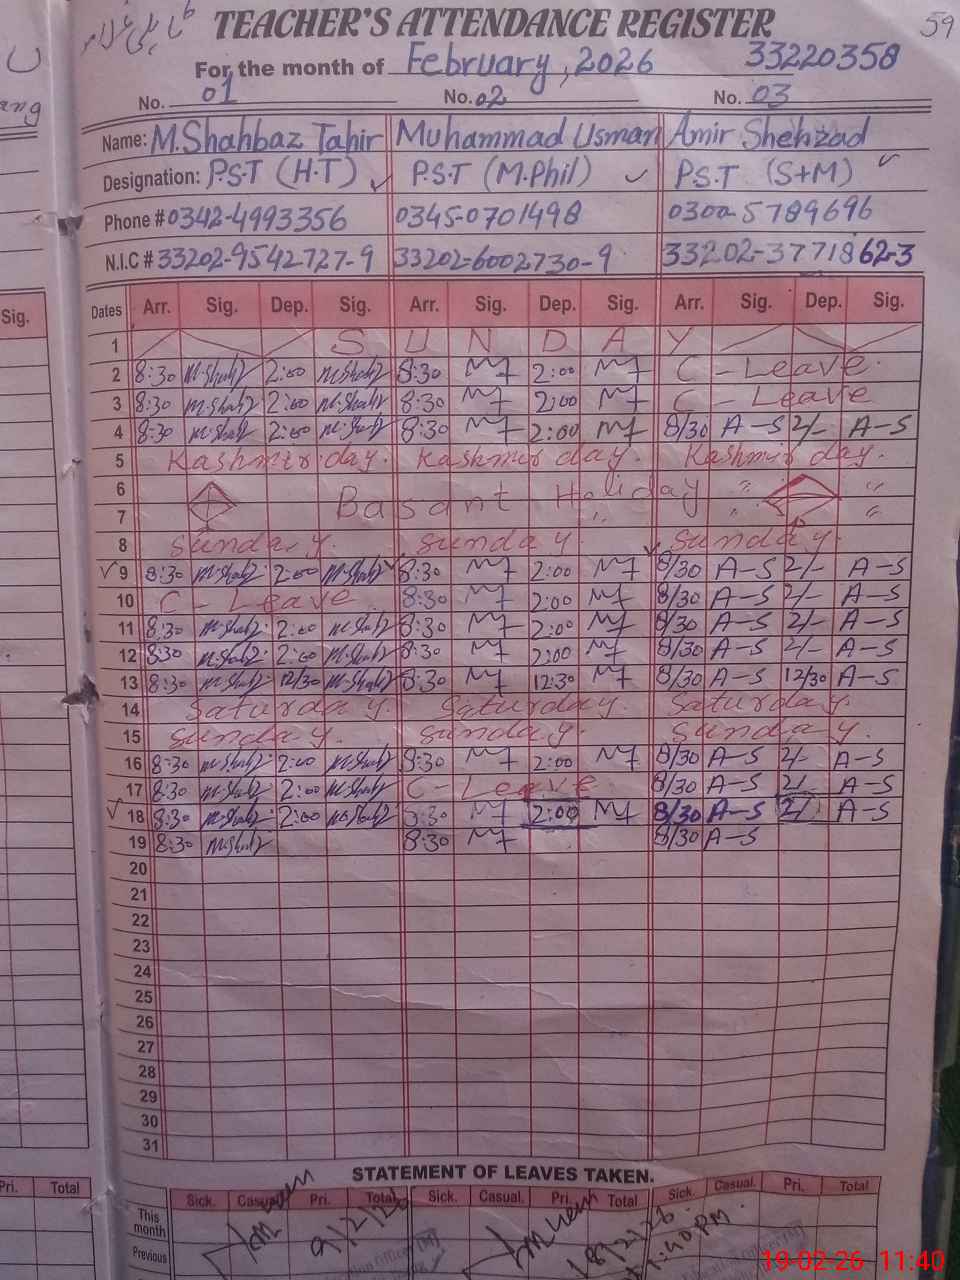 TEACHER'S ATTENDANCE REGISTER 59
For the month of February, 2026 33220358
No. 01 No. 02 No. 03
Name: M.Shahbaz Tahir Muhammad Usman Amir Shehzad
Designation: P.S.T (H.T) P.S.T (M.Phil) P.S.T (S+M)
Phone # 0342-4993356 0345-0701498 0300-5789696
N.I.C # 33202-9542727-9 33202-6002730-9 33202-3771862-3
Sig. Dates Arr. Sig. Dep. Sig. Arr. Sig. Dep. Sig. Arr. Sig. Dep. Sig.
1 S U N D A Y
2 8:30 M.Shahz 2:00 M.Shahz 8:30 2:00 C - Leave.
3 8:30 M.Shahz 2:00 M.Shahz 8:30 2:00 C - Leave
4 8:30 M.Shahz 2:00 M.Shahz 8:30 2:00 8/30 A-S 2/- A-S
5 Kashmir day. Kashmir day. Kashmir day.
6 Basant Holiday " "
7 " " "
8 Sunday. Sunday. Sunday.
9 8:30 M.Shahz 2:00 M.Shahz 8:30 2:00 8/30 A-S 2/- A-S
10 C - Leave 8:30 2:00 8/30 A-S 2/- A-S
11 8:30 M.Shahz 2:00 M.Shahz 8:30 2:00 8/30 A-S 2/- A-S
12 8:30 M.Shahz 2:00 M.Shahz 8:30 2:00 8/30 A-S 2/- A-S
13 8:30 M.Shahz 12/30 M.Shahz 8:30 12:30 8/30 A-S 12/30 A-S
14 Saturday. Saturday. Saturday.
15 Sunday. Sunday. Sunday.
16 8:30 M.Shahz 2:00 M.Shahz 8:30 2:00 8/30 A-S 2/- A-S
17 8:30 M.Shahz 2:00 M.Shahz C - Leave 8/30 A-S 2/- A-S
18 8:30 M.Shahz 2:00 M.Shahz 8:30 2:00 8/30 A-S 2/- A-S
19 8:30 M.Shahz 8:30 8/30 A-S
20
21
22
23
24
25
26
27
28
29
30
31
STATEMENT OF LEAVES TAKEN.
Pri. Total Sick. Casual. Pri. Total Sick. Casual. Pri. Total Sick. Casual. Pri. Total
This month
Previous 9/2/26 18/2/26
1:40 PM
19-02-26 11:40